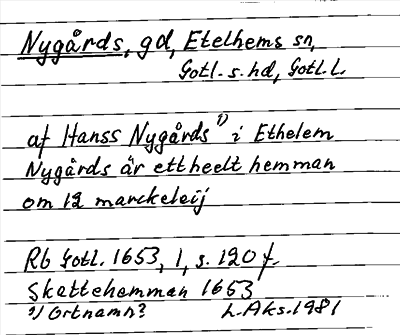 Nygårds, gd, Etelhems sn,
Gotl. s. hd, Gotl. L.
af Hanss Nygårds¹⁾ i Ethelem
Nygårds är ett heelt hemman
om 12 marckeleij
Rb Gotl. 1653, 1, s. 120 f.
Skattehemman 1653
¹⁾ Ortnamn? L. Aks. 1981